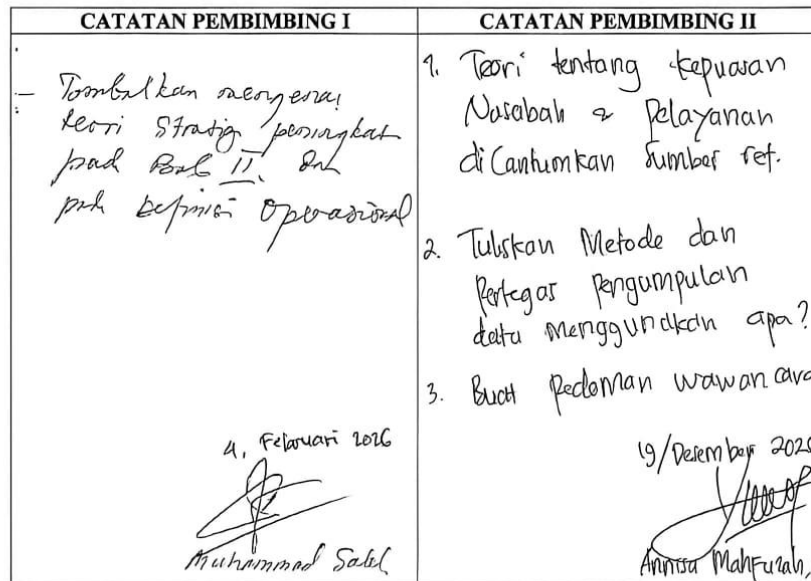 CATATAN PEMBIMBING I
- Tambalkan mengenai
teori Strategi peningkatan
pada Bab II. dan
pada definisi operasional
4, Februari 2026
Muhammad Saleh
CATATAN PEMBIMBING II
1. Teori tentang kepuasan
Nasabah & Pelayanan
di Cantumkan Sumber ref.
2. Tuliskan Metode dan
Pertegas Pengumpulan
data menggunakan apa?
3. Buat Pedoman wawancara
19/Desember 202
Annisa Mahfuzah,